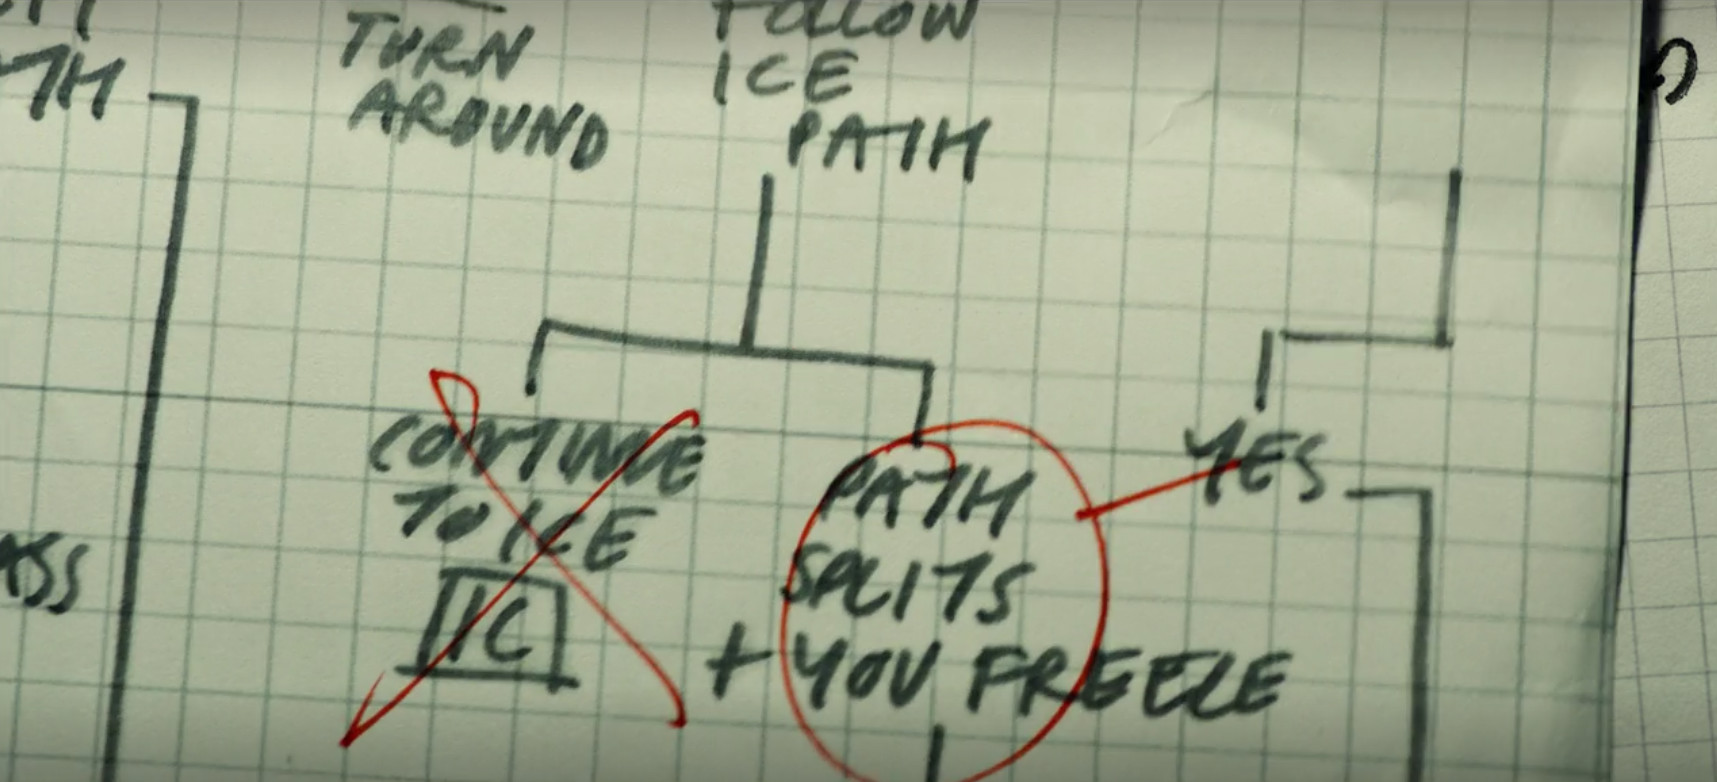 TURN
AROUND
FOLLOW
ICE
PATH
CONTINUE
TO ICE
IC
PATH
SPLITS
+ YOU FREEZE
YES